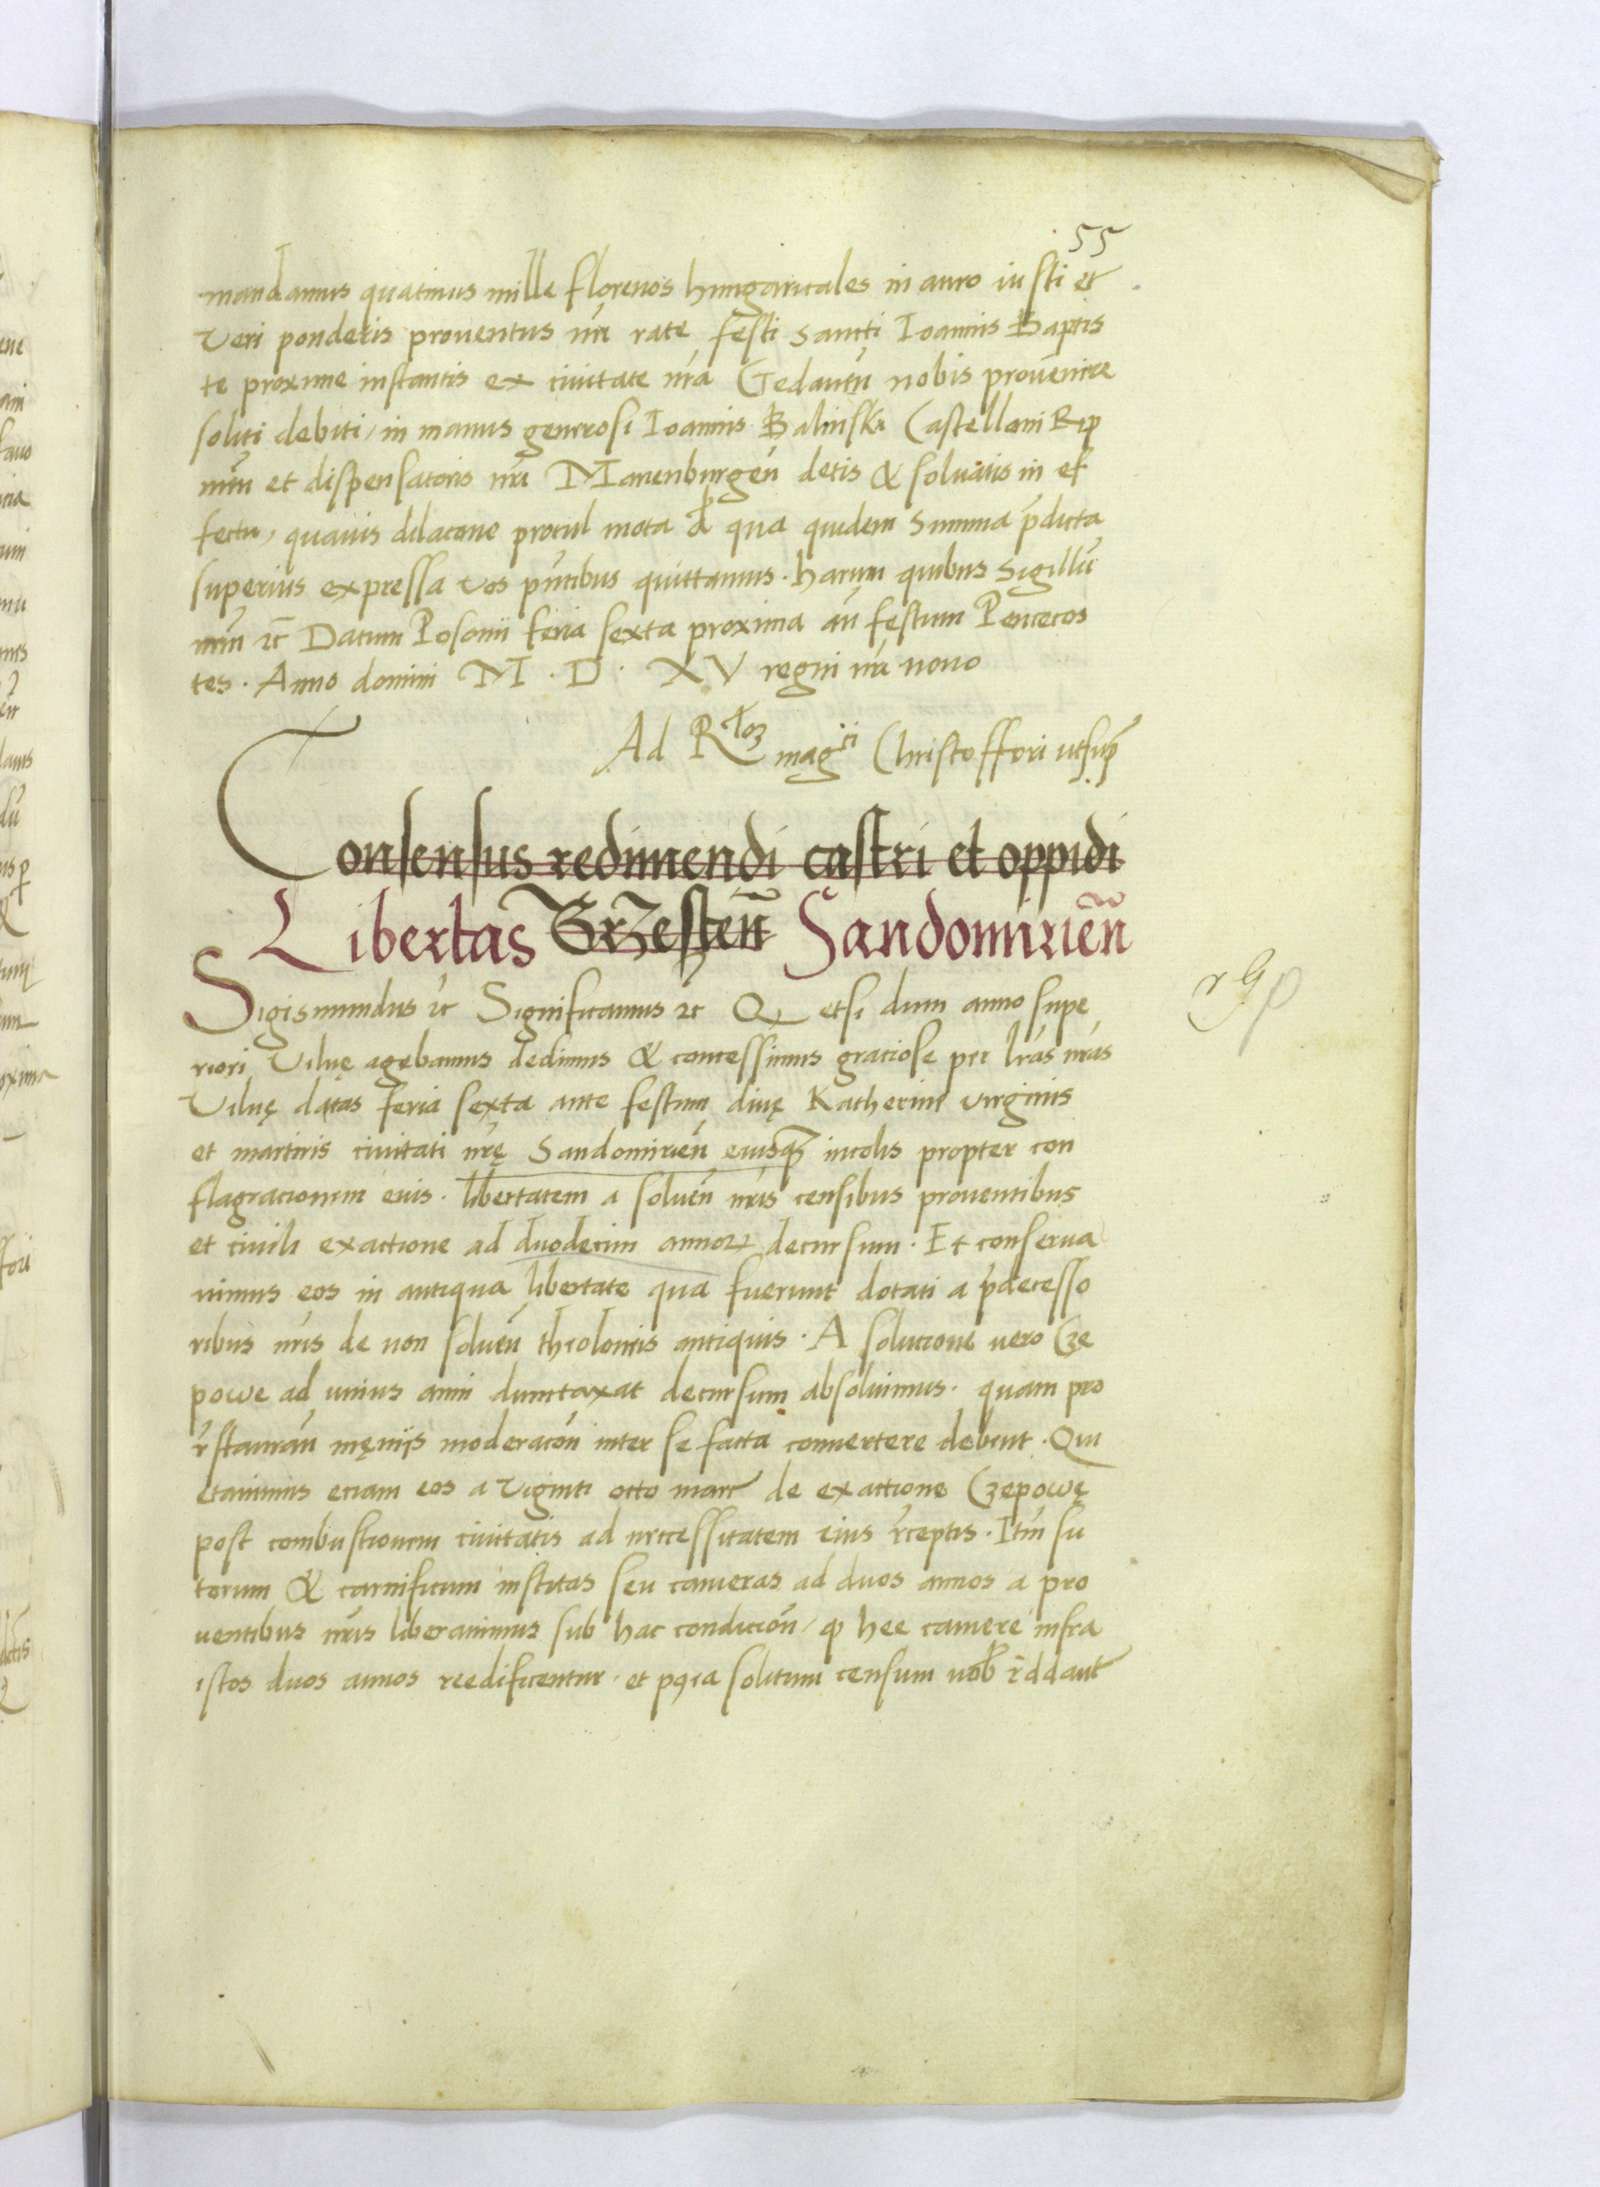 55
mandamus quatinus mille florenos hungaricales in auro iusti et
veri ponderis proventus nri rate festi sancti Ioannis Baptis
te proxime instantis ex civitate nra Gedanēn nobis provenire
soliti debiti / in manus generosi Ioannis Balinski Castellani Rip
nen et dispensatoris nri Marienburgēn detis & solvatis in ef
fectu, quavis dilacone procul mota d qua quidem summa pdicta
superius expressa vos pntibus quittamus. harum quibus sigillū
nrm rc Datum Posonii feria sexta proxima an festum Pentecos
tes. Anno domini M. D. XV regni nri nono
Ad Rloz magci Christoffori utsup
Consensus redimendi castri et oppidi
Libertas Brzestēn Sandomiriēn
Sigismundus rc Significamus rc Q etsi dum anno supe
riori Vilnę agebamus dedimus & concessimus graciose per lras nras
Vilnę datas feria sexta ante festum divę Katherine virginis
et martiris civitati nrę Sandomiriēn eiusq incolis propter con
flagracionem eius. libertatem a solven nris censibus proventibus
et civili exactione ad duodecim annoz decursum. Et conserva
vimus eos in antiqua libertate qua fuerunt dotati a pdecesso
ribus nris de non solvēn theloneis antiquis. A solutione vero Cze
powe ad unius anni dumtaxat decursum absolvimus. quam pro
rstauran męniis moderacōn inter se facta convertere debent. Qui
etavimus eciam eos a viginti octo marc de exactione Czepowę
post combustionem civitatis ad necessitatem eius rceptis. Itm su
torum & carnificum institas seu cameras ad duos annos a pro
ventibus nris liberavimus sub hac condicion / q hee camere infra
istos duos annos reedificentur. et pqia solitum censum nob rddant